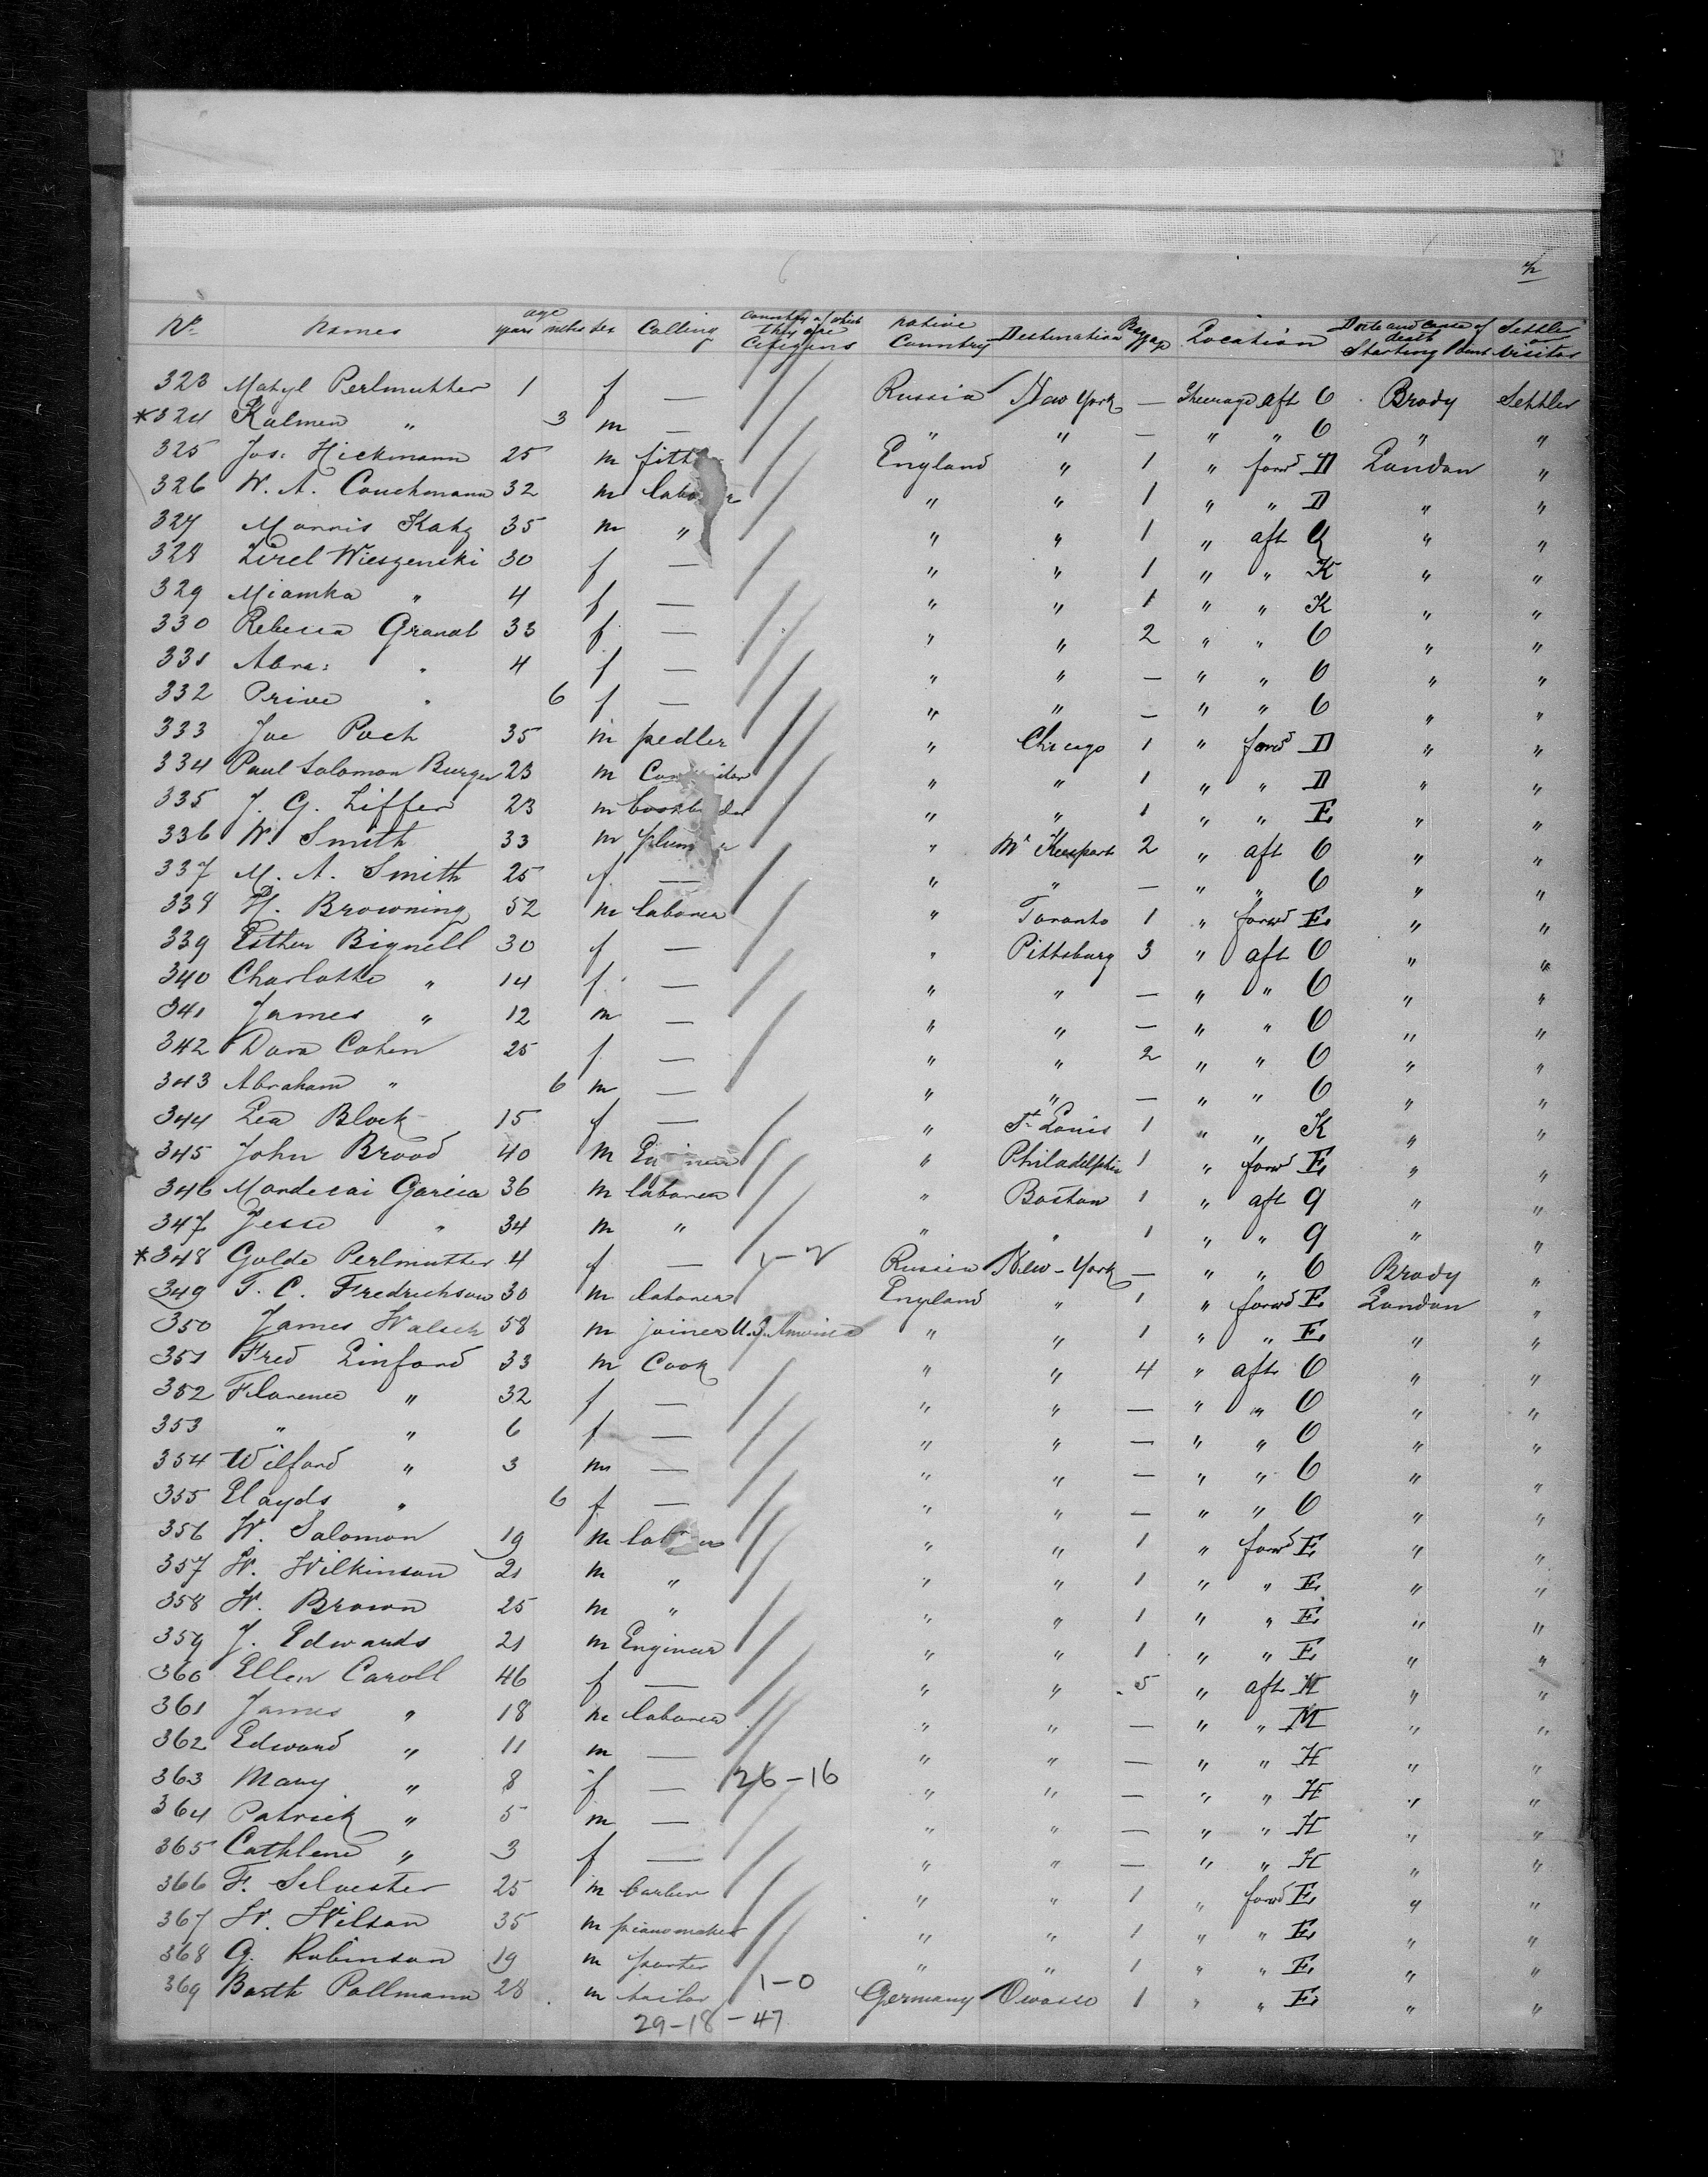 No. Names age years mths sex Calling Country of which they are Citizens native Country Destination Location Date and cause of death Starting Point Settler or visitor
323 Matyl Perlmutter 1 f — Russia New York — Steerage aft O Brody Settler
*324 Kalmen " 3 m — " " — " " O " "
325 Jos: Hickmann 25 m England " 1 " forwd D London "
326 W. A. Couchmann 32 m " " 1 " " D " "
327 Morris Katz 35 m " " " 1 " aft " "
328 Zirel Wieszenski 30 f — " " 1 " " K " "
329 Miamka " 4 f — " " 1 " " K " "
330 Rebecca Granat 33 f — " " 2 " " O " "
331 Abra: " 4 f — " " — " " O " "
332 Prive " 6 f — " " — " " O " "
333 Joe Poch 35 m pedler " Chicago 1 " forwd D " "
334 Paul Solomon Burger 23 m " " 1 " " D " "
335 J. G. Liffer 23 m " " 1 " " E " "
336 W. Smith 33 m " Mc Keesport 2 " aft O " "
337 M. A. Smith 25 f — " " — " " O " "
338 H. Browning 52 m laborer " Toronto 1 " forwd E " "
339 Esther Bignell 30 f — " Pittsburg 3 " aft O " "
340 Charlotte " 14 f — " " — " " O " "
341 James " 12 m — " " — " " O " "
342 Dora Cohen 25 f — " " 2 " " O " "
343 Abraham " 6 m — " " — " " O " "
344 Lea Block 15 f — " St Louis 1 " " K " "
345 John Brood 40 m " Philadelphia 1 " forwd E " "
346 Mordecai Garcia 36 m laborer " Boston 1 " aft 9 " "
347 Jesse " 34 m " " " 1 " " 9 " "
*348 Golde Perlmutter 4 f — 1-2 Russia New-York — " " O Brody "
349 T. C. Fredrichson 30 m laborer England " 1 " forwd E London "
350 James Walsch 58 m joiner U.S. America " " 1 " " E " "
351 Fred Linford 33 m Cook " " 4 " aft O " "
352 Florence " 32 f — " " — " " O " "
353 " " 6 f — " " — " " O " "
354 Wilford " 3 m — " " — " " O " "
355 Eloyds " 6 f — " " — " " O " "
356 W. Salomon 19 m " " 1 " forwd E " "
357 W. Wilkinson 21 m " " " 1 " " E " "
358 W. Brown 25 m " " " 1 " " E " "
359 J. Edwards 21 m Engineer " " 1 " " E " "
360 Ellen Caroll 46 f — " " 5 " aft H " "
361 James " 18 m laborer " " — " " M " "
362 Edward " 11 m — " " — " " H " "
363 Mary " 8 f — 26-16 " " — " " H " "
364 Patrick " 5 m — " " — " " H " "
365 Cathlene " 3 f — " " — " " H " "
366 F. Silvester 25 m barber " " 1 " forwd E " "
367 W. Wilson 35 m pianomaker " " 1 " " E " "
368 G. Robinson 19 m porter " " 1 " " E " "
369 Barth Pollmann 28 m tailor 1-0 Germany Owosso 1 " " E " "
29-18-47